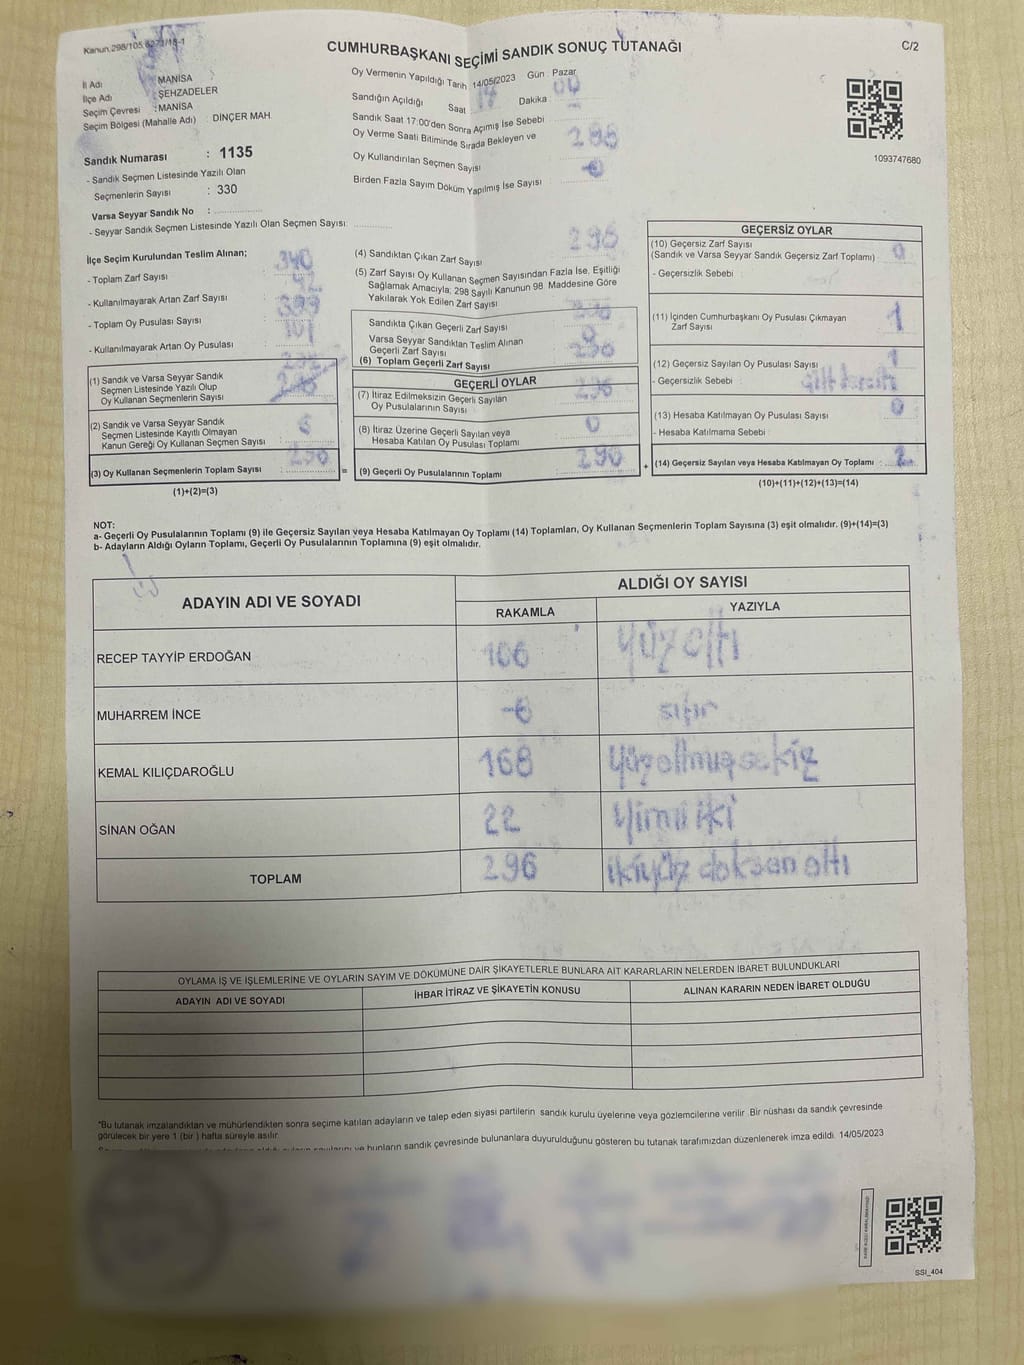 Kanun.298/105,6271/18-1
CUMHURBAŞKANI SEÇİMİ SANDIK SONUÇ TUTANAĞI
C/2
İl Adı : MANİSA
İlçe Adı : ŞEHZADELER
Seçim Çevresi : MANİSA
Seçim Bölgesi (Mahalle Adı) : DİNÇER MAH.
Sandık Numarası : 1135
- Sandık Seçmen Listesinde Yazılı Olan
Seçmenlerin Sayısı : 330
Varsa Seyyar Sandık No :
- Seyyar Sandık Seçmen Listesinde Yazılı Olan Seçmen Sayısı:
Oy Vermenin Yapıldığı Tarih 14/05/2023 Gün : Pazar
Sandığın Açıldığı Saat 17 Dakika 00
Sandık Saat 17:00'den Sonra Açımış İse Sebebi
Oy Verme Saati Bitiminde Sırada Bekleyen ve
Oy Kullandırılan Seçmen Sayısı
Birden Fazla Sayım Döküm Yapılmış İse Sayısı
1093747680
İlçe Seçim Kurulundan Teslim Alınan;
- Toplam Zarf Sayısı 340
- Kullanılmayarak Artan Zarf Sayısı 42
- Toplam Oy Pusulası Sayısı 399
- Kullanılmayarak Artan Oy Pusulası 101
(1) Sandık ve Varsa Seyyar Sandık
Seçmen Listesinde Yazılı Olup
Oy Kullanan Seçmenlerin Sayısı
(2) Sandık ve Varsa Seyyar Sandık
Seçmen Listesinde Kayıtlı Olmayan
Kanun Gereği Oy Kullanan Seçmen Sayısı
(3) Oy Kullanan Seçmenlerin Toplam Sayısı
(1)+(2)=(3)
(4) Sandıktan Çıkan Zarf Sayısı 296
(5) Zarf Sayısı Oy Kullanan Seçmen Sayısından Fazla İse, Eşitliği
Sağlamak Amacıyla; 298 Sayılı Kanunun 98 Maddesine Göre
Yakılarak Yok Edilen Zarf Sayısı
Sandıkta Çıkan Geçerli Zarf Sayısı
Varsa Seyyar Sandıktan Teslim Alınan
Geçerli Zarf Sayısı
(6) Toplam Geçerli Zarf Sayısı
=
GEÇERLİ OYLAR
(7) İtiraz Edilmeksizin Geçerli Sayılan
Oy Pusulalarının Sayısı 296
(8) İtiraz Üzerine Geçerli Sayılan veya
Hesaba Katılan Oy Pusulası Toplamı 0
(9) Geçerli Oy Pusulalarının Toplamı
+
GEÇERSİZ OYLAR
(10) Geçersiz Zarf Sayısı
(Sandık ve Varsa Seyyar Sandık Geçersiz Zarf Toplamı) 0
- Geçersizlik Sebebi
(11) İçinden Cumhurbaşkanı Oy Pusulası Çıkmayan
Zarf Sayısı 1
(12) Geçersiz Sayılan Oy Pusulası Sayısı 1
- Geçersizlik Sebebi :
(13) Hesaba Katılmayan Oy Pusulası Sayısı 0
- Hesaba Katılmama Sebebi
(14) Geçersiz Sayılan veya Hesaba Katılmayan Oy Toplamı : 2
(10)+(11)+(12)+(13)=(14)
NOT:
a- Geçerli Oy Pusulalarının Toplamı (9) ile Geçersiz Sayılan veya Hesaba Katılmayan Oy Toplamı (14) Toplamları, Oy Kullanan Seçmenlerin Toplam Sayısına (3) eşit olmalıdır. (9)+(14)=(3)
b- Adayların Aldığı Oyların Toplamı, Geçerli Oy Pusulalarının Toplamına (9) eşit olmalıdır.
ADAYIN ADI VE SOYADI
ALDIĞI OY SAYISI
RAKAMLA YAZIYLA
RECEP TAYYİP ERDOĞAN 106 yüzaltı
MUHARREM İNCE 0 sıfır
KEMAL KILIÇDAROĞLU 168 yüzaltmışsekiz
SİNAN OĞAN 22 yirmi iki
TOPLAM 296 ikiyüz doksan altı
OYLAMA İŞ VE İŞLEMLERİNE VE OYLARIN SAYIM VE DÖKÜMÜNE DAİR ŞİKAYETLERLE BUNLARA AİT KARARLARIN NELERDEN İBARET BULUNDUKLARI
ADAYIN ADI VE SOYADI İHBAR İTİRAZ VE ŞİKAYETİN KONUSU ALINAN KARARIN NEDEN İBARET OLDUĞU
*Bu tutanak imzalandıktan ve mühürlendikten sonra seçime katılan adayların ve talep eden siyasi partilerin sandık kurulu üyelerine veya gözlemcilerine verilir. Bir nüshası da sandık çevresinde
görülecek bir yere 1 (bir ) hafta süreyle asılır.
ve bunların sandık çevresinde bulunanlara duyurulduğunu gösteren bu tutanak tarafımızdan düzenlenerek imza edildi. 14/05/2023
SSI_404